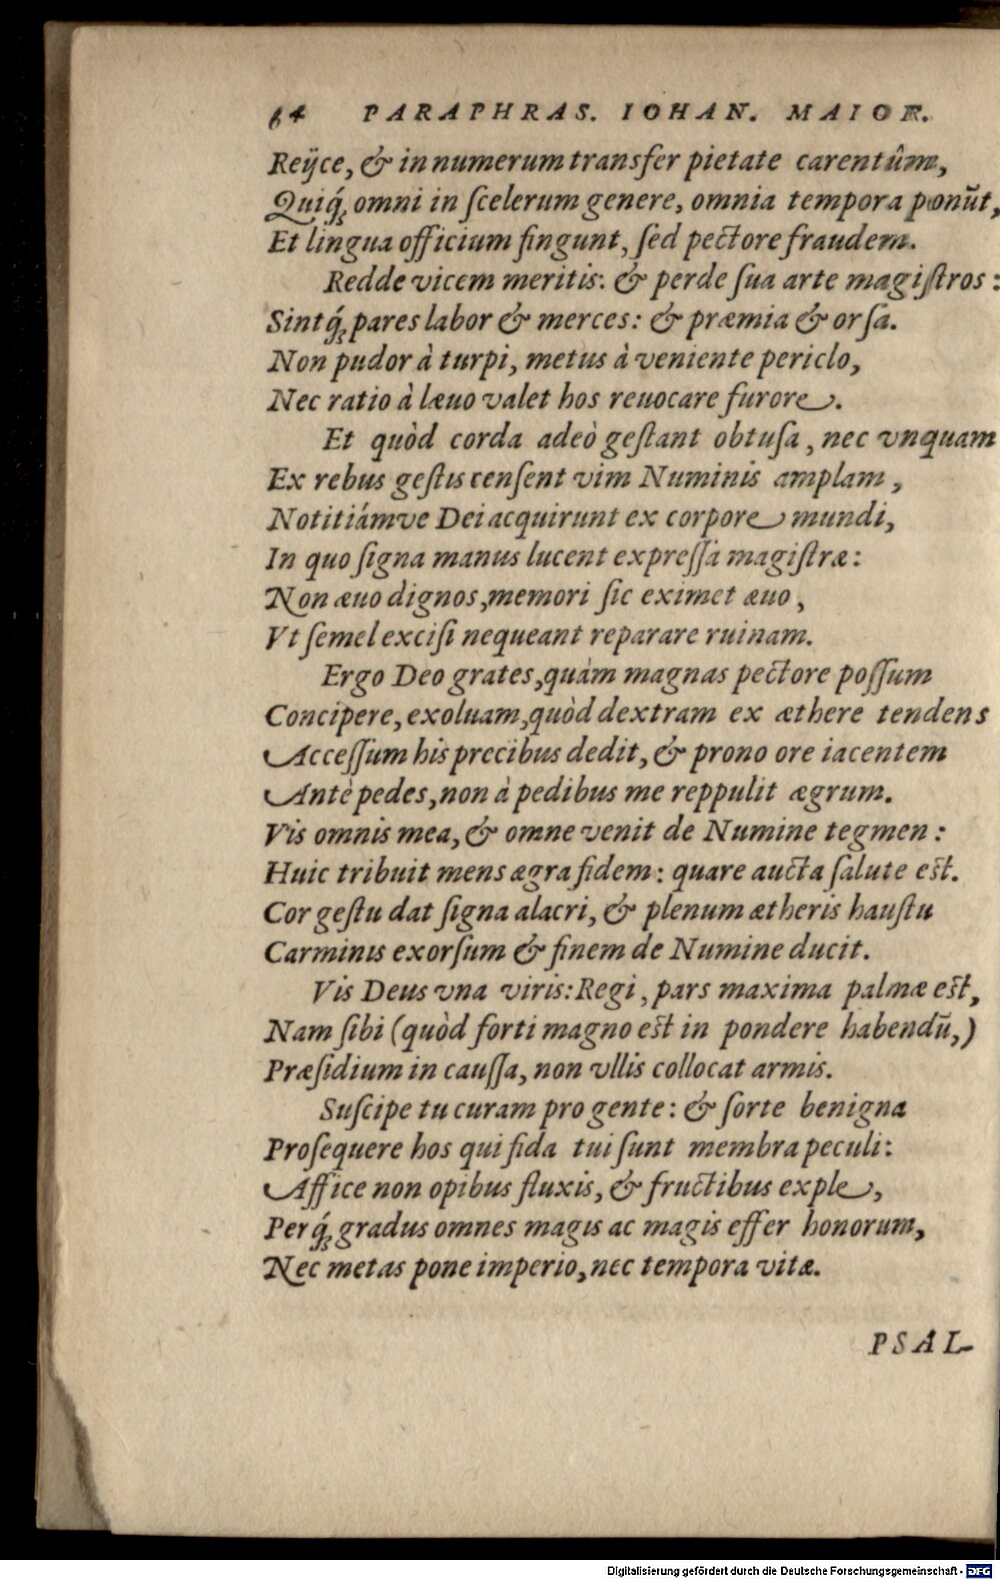 64 PARAPHRAS. IOHAN. MAIOR.
Reijce, & in numerum transfer pietate carentûm,
Quiq́; omni in ſcelerum genere, omnia tempora ponūt,
Et lingua officium fingunt, ſed pectore fraudem.
Redde vicem meritis: & perde ſua arte magiſtros:
Sintq́; pares labor & merces: & præmia & orſa.
Non pudor à turpi, metus à veniente periclo,
Nec ratio à læuo valet hos reuocare furore.
Et quòd corda adeò geſtant obtuſa, nec vnquam
Ex rebus geſtis cenſent vim Numinis amplam,
Notitiámve Dei acquirunt ex corpore mundi,
In quo ſigna manus lucent expreſſa magiſtræ:
Non æuo dignos, memori ſic eximet æuo,
Vt ſemel exciſi nequeant reparare ruinam.
Ergo Deo grates, quàm magnas pectore poſſum
Concipere, exoluam, quòd dextram ex æthere tendens
Acceſſum his precibus dedit, & prono ore iacentem
Antè pedes, non à pedibus me reppulit ægrum.
Vis omnis mea, & omne venit de Numine tegmen:
Huic tribuit mens ægra fidem: quare aucta ſalute eſt.
Cor geſtu dat ſigna alacri, & plenum ætheris hauſtu
Carminis exorſum & finem de Numine ducit.
Vis Deus vna viris: Regi, pars maxima palmæ eſt,
Nam ſibi (quòd forti magno eſt in pondere habendū,)
Præſidium in cauſſa, non vllis collocat armis.
Suſcipe tu curam pro gente: & ſorte benigna
Proſequere hos qui fida tui ſunt membra peculi:
Affice non opibus fluxis, & fructibus exple,
Perq́; gradus omnes magis ac magis effer honorum,
Nec metas pone imperio, nec tempora vitæ.
PSAL-
Digitalisierung gefördert durch die Deutsche Forschungsgemeinschaft - DFG